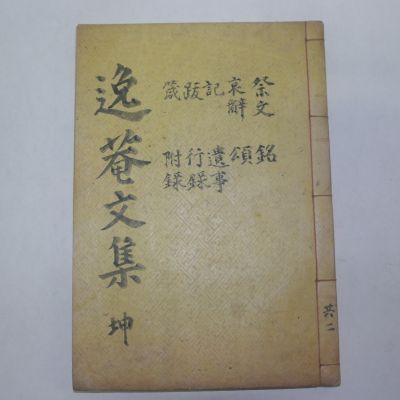 逸菴文集 坤
祭文 銘
哀辭 頌
記 遺事
跋 行錄
箴 附錄
共二